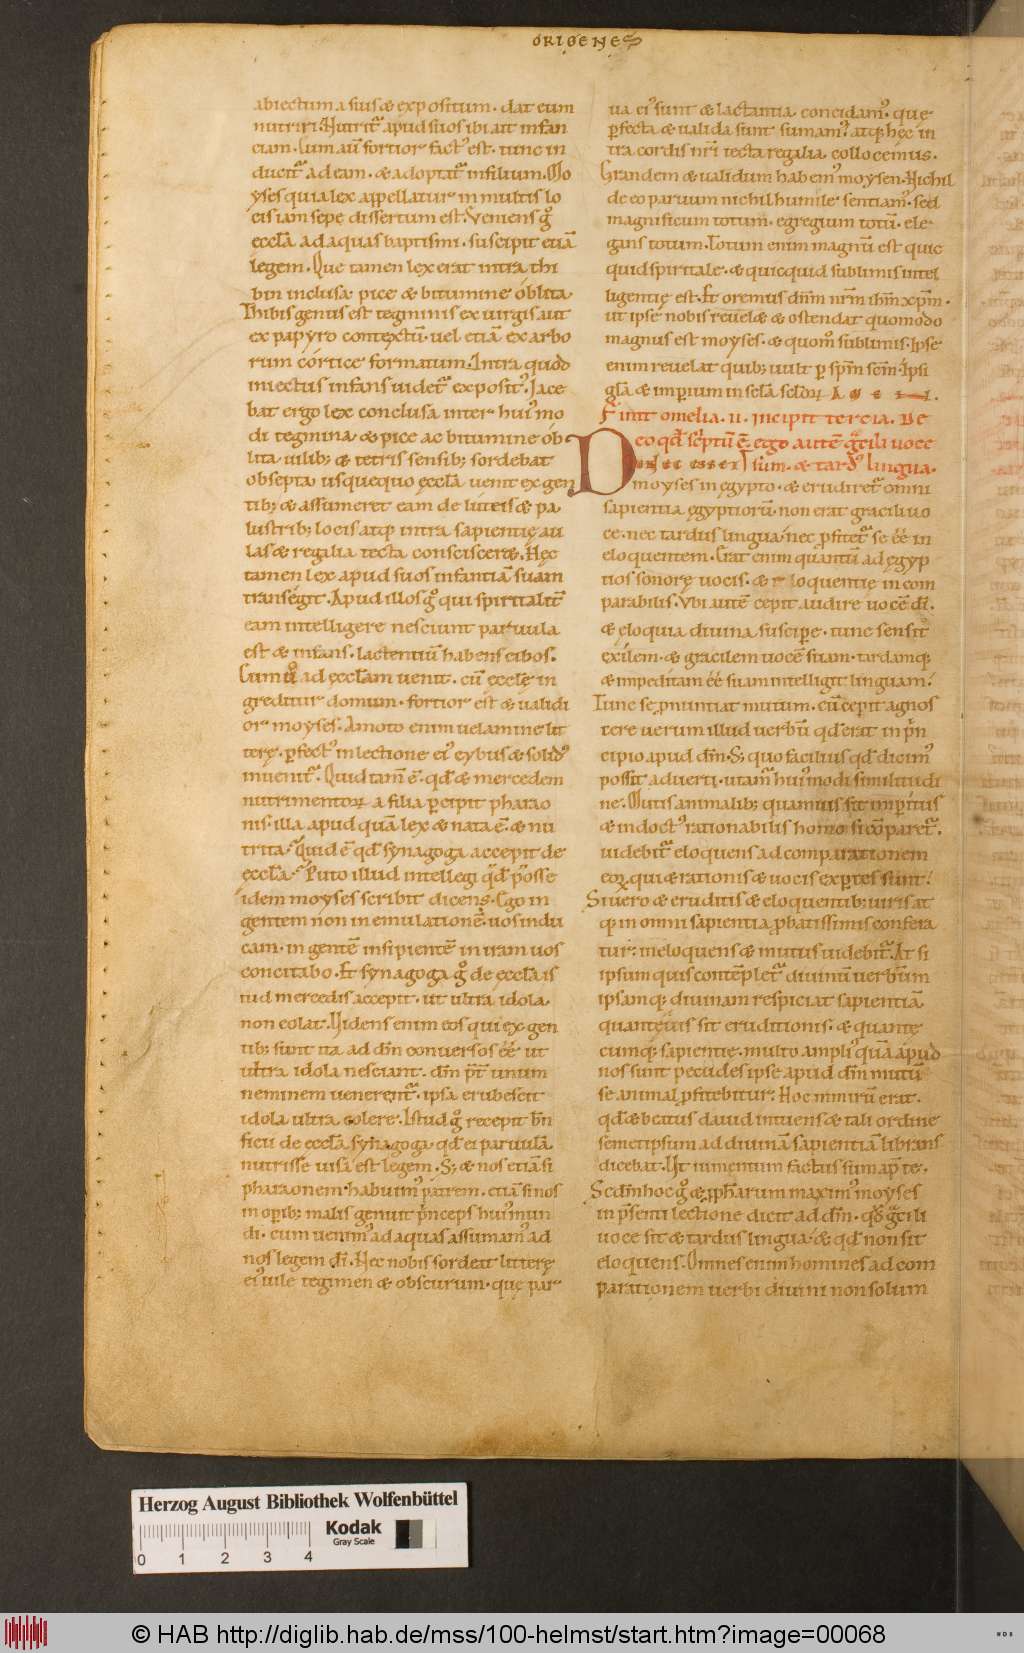 ORIGENES
abiectum a suis & expositum. dat eum
nutriri. Nutrit᷑ apud suos ibi ait infan
ciam. Cum aū fortior fact᷒ est. tunc in
ducit᷑ ad eam. & adoptat᷑ in filium. Mo
yses quia lex appellatur in multis lo
cis iam sepe dissertum est. Veniens gͦ
eccl̄a ad aquas baptismi. suscipit etiā
legem. Que tamen lex erat intra thi
bin inclusa pice & bitumine oblita.
Thibis genus est tegminis ex virgis aut
ex papyro contextū. vel etiā ex arbo
rum córtice formatum. Intra quod
iniectus infans uidet᷑ exposit᷒. Iace
bat ergo lex conclusa inter hui᷒mo
di tegmina & pice ac bitumine ób
lita. uilib; & tetris sensib; sordebat
obsepta. usquequo ęccl̄a uenit ex gen
tib; & assumeret eam de lúteis & pa
lustrib; locis atq; intra sapientię au
las & regalia tecta consciscer&. Hęc
tamen lex apud suos infantiā suam
transegit. Apud illos gͦ qui spiritalit̄
eam intelligere nesciunt paruula
est & infans. lactentiū habens cibos.
Cum u᷎ͦ ad ęccl̄am uenit. cū eccl̄ę in
greditur domum. fortior est & ualidi
or moyses. Amoto enim uelamine lit
terę. p̱fect᷒ in lectione ei᷒ cybus & solid᷒
inuenit᷑. Quid tam̄ ē. qđ & mercedem
nutrimentoꝝ a filia p̱cipit pharao
nis. illa apud quā lex & nata ē. & nu
trita. Quid ē qđ synagoga accepit de
ęccl̄a. Puto illud intellegi qđ posse
idem moyses scribit dicens. Ego in
gentem non in emulationē uos indu
cam. in gentē insipientē in iram uos
concitabo. Et synagoga gͦ de eccl̄a is
tud mercedis accepit. ut ultra idola
non colat. Videns enim eos qui ex gen
tib; sunt ita ad dm̄ conuersos éé ut
ultra idola nesciant. dm̄ p̄t̄ unum
neminem venerent᷑. ipsa erubescit
idola ultra colere. Istud gͦ recepit bn̄
ficii de eccl̄a synagoga. qđ ei paruulā
nutrisse uisa est legem. S; & nos etiā si
pharaonem habuim᷒ patrem. etiā si nos
in op̱ib; malis genuit p̄nceps hui᷒ mun
di. cum venim᷒ ad aquas assumam᷒ ad
nos legem dī. Nec nobis sordeat litterę
ei᷒ uile tegimen & obscurum. que par
ua ei᷒ sunt & lactantia. concidam᷒. que
p̱fecta & valida sunt sumam᷒. atq; hęc in
tra cordis nr̄i tecta regalia. collocemus.
Grandem & validum habem᷒ moysen. Nichil
de eo paruum nichil humile sentiam᷒. sed
magnificum totum. egregium totū. ele
gans totum. Totum enim magnū est quic
quid spiritale. & quicquid sublimis intel
ligentię est. Et oremus dn̄m nr̄m ih̄m xp̄m.
ut ipse nobis revel& & ostendat quomodo
magnus est moyses. & quom̄ sublimis. Ipse
enim reuelat quib; uult p̱ sp̄m sc̄m. Ipsi
gl̄a & imperium in scl̄a scl̄oꝝ. AMEN.
Finit omelia. II. Incipit tercia. De
eo qđ sc̄ptū ē. ego autē g̃cili voce
sum. & tard᷒ lingua.
Dum ec esset
moyses in ęgypto. & erudiret᷑ omni
sapientia ęgyptiorū. non erat gracili uo
ce. nec tardus lingua. nec p̱fitet᷑ se éé in
eloquentem. Erat enim quantū ad ęgyp
tios sonorę uocis. & eloquentię incom
parabilis. Vbi autē cepit audire uocē dī.
& eloquia diuina suscip̱e. tunc sensit
exilem. & gracilem uocē suam. tardamq;
& impeditam éé suam intelligit linguam.
Tunc se p̱nuntiat mutum. cū cepit agnos
cere uerum illud uerbū. qđ erat in p̄n
cipio apud dm̄. S; quo facilius qđ dicim᷒
possit aduerti. utam᷑ hui᷒modi similitudi
ne. Mutis animalib; quamuis sit imp̱itus
& indoct᷒ rationabilis homo si cōparet᷑.
uidebit᷑ eloquens ad comparationem
eoꝝ. qui & rationis & uocis exp̱tes sunt.
Si uero & eruditis & eloquentib; uiris at
q; in omni sapientia p̱batissimis confera
tur. ineloquens & mutus uidebit᷑. At si
ipsum quis contēplet᷑ diuinū uerbum
ipsamq; diuinam respiciat sapientiā.
quantęuis sit eruditionis. & quantę
cumq; sapientię. multo ampli᷒ quā apud
nos sunt pecudes ipse apud dm̄ mutū
se animal p̱fitebitur. Hoc nimirū erat.
qđ & beatus dauid intuens & tali ordine
semetipsum ad diuinā sapientiā librans
dicebat. Ut iumentum factus sum ap̄ te.
Scdm̄ hoc gͦ & p̱ph̄arum maxim᷒ moyses
in p̄senti lectione dicit ad dm̄. qđ g̃cili
uoce sit & tardus lingua. & qđ non sit
eloquens. Omnes enim homines ad com
parationem uerbi diuini non solum
Herzog August Bibliothek Wolfenbüttel
Kodak
Gray Scale
0 1 2 3 4
© HAB http://diglib.hab.de/mss/100-helmst/start.htm?image=00068